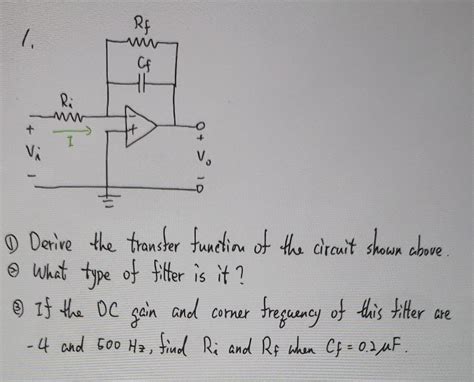 1.
Rf
Cf
Ri
- 
+
+
I
+
Vi
Vo
-
-
① Derive the transfer function of the circuit shown above.
② What type of filter is it?
③ If the DC gain and corner frequency of this filter are
-4 and 500 Hz, find Ri and Rf when Cf = 0.2 μF.